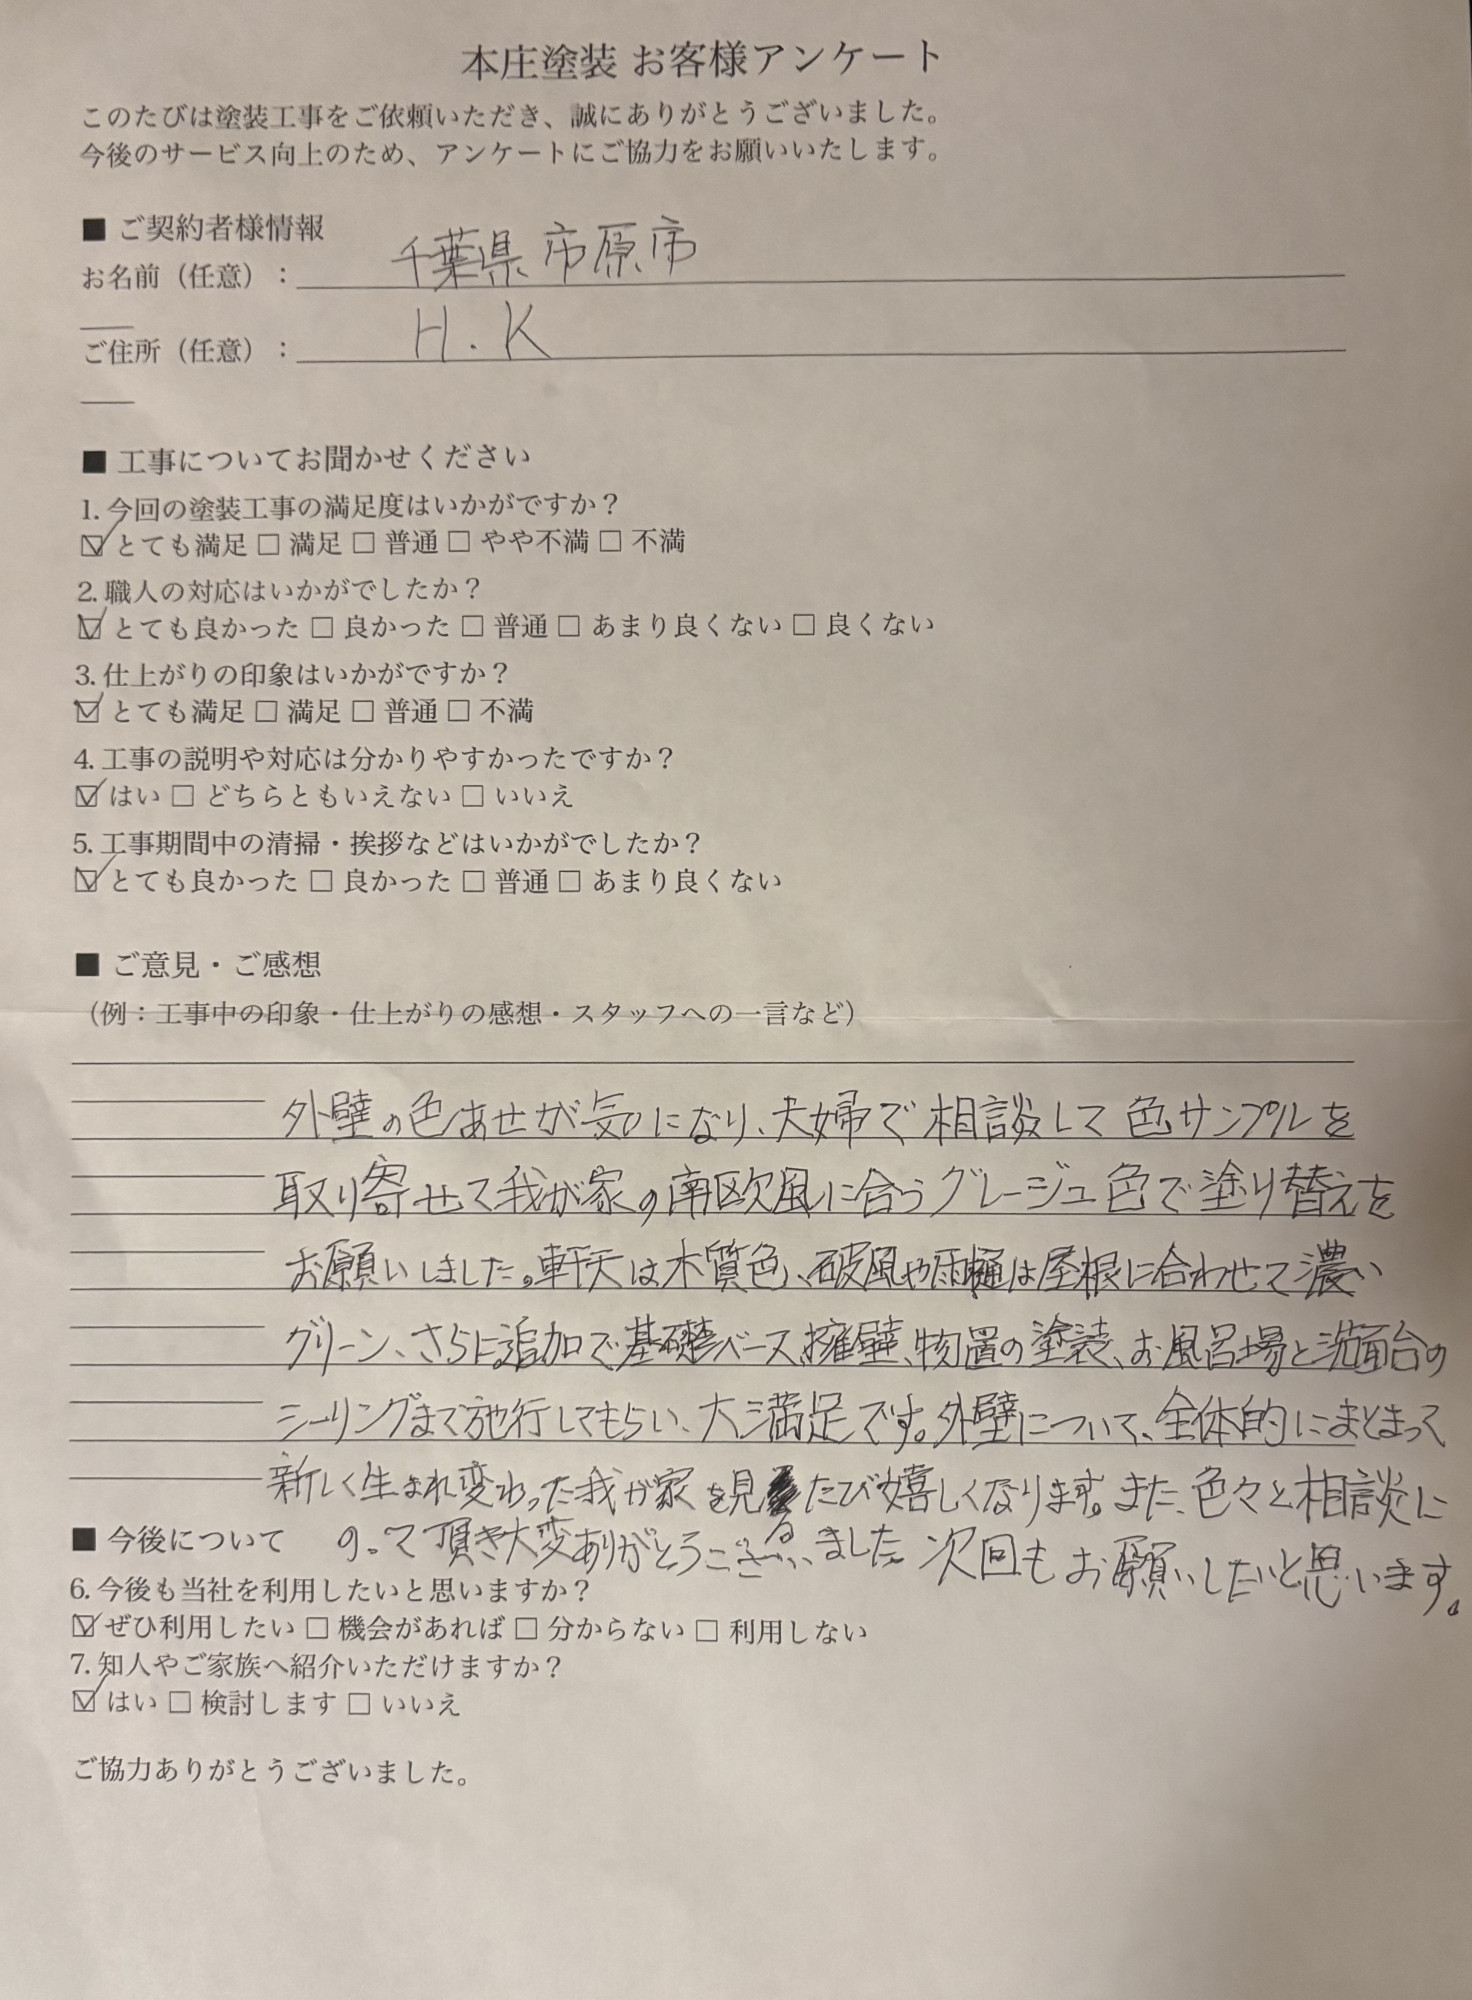 本庄塗装 お客様アンケート
このたびは塗装工事をご依頼いただき、誠にありがとうございました。
今後のサービス向上のため、アンケートにご協力をお願いいたします。
■ ご契約者様情報
お名前（任意）：千葉県市原市
ご住所（任意）：H.K
■ 工事についてお聞かせください
1. 今回の塗装工事の満足度はいかがですか？
☑ とても満足 □ 満足 □ 普通 □ やや不満 □ 不満
2. 職人の対応はいかがでしたか？
☑ とても良かった □ 良かった □ 普通 □ あまり良くない □ 良くない
3. 仕上がりの印象はいかがですか？
☑ とても満足 □ 満足 □ 普通 □ 不満
4. 工事の説明や対応は分かりやすかったですか？
☑ はい □ どちらともいえない □ いいえ
5. 工事期間中の清掃・挨拶などはいかがでしたか？
☑ とても良かった □ 良かった □ 普通 □ あまり良くない
■ ご意見・ご感想
（例：工事中の印象・仕上がりの感想・スタッフへの一言など）
外壁の色あせが気になり、夫婦で相談して色サンプルを
取り寄せて我が家の南欧風に合うグレージュ色で塗り替えを
お願いしました。軒天は木質色、破風や雨樋は屋根に合わせて濃い
グリーン、さらに追加で基礎ベース、擁壁、物置の塗装、お風呂場と洗面台の
シーリングまで施行してもらい、大満足です。外壁について、全体的にまとまって
新しく生まれ変わった我が家を見るたび嬉しくなります。また、色々と相談に
のって頂き大変ありがとうございました。次回もお願いしたいと思います。
■ 今後について
6. 今後も当社を利用したいと思いますか？
☑ ぜひ利用したい □ 機会があれば □ 分からない □ 利用しない
7. 知人やご家族へ紹介いただけますか？
☑ はい □ 検討します □ いいえ
ご協力ありがとうございました。